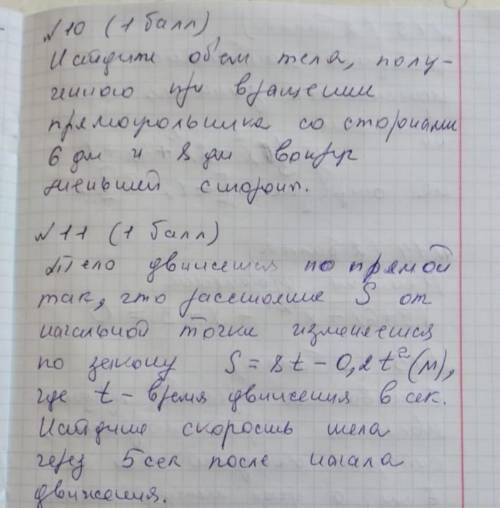 №10 (1 балл)
Найдите объем тела, полу-
ченного при вращении
прямоугольника со сторонами
6 дм и 8 дм вокруг
меньшей сторон.
№11 (1 балл)
Тело движется по прямой
так, что расстояние S от
начальной точки изменяется
по закону S = 8t − 0,2t² (м),
где t – время движения в сек.
Найдите скорость тела
через 5 сек после начала
движения.